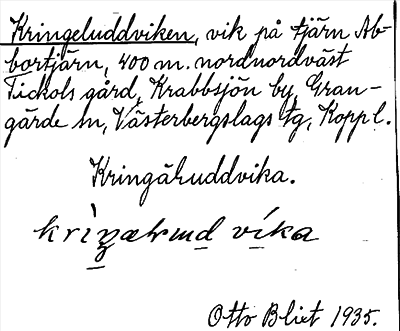 Kringeluddviken, vik på tjärn Ab-
bortjärn, 400 m. nordnordväst
Tickols gård, Krabbsjön by, Gran-
gärde sn, Västerbergslags tg, Koppl.
Kringäluddvika.
Otto Blixt 1935.